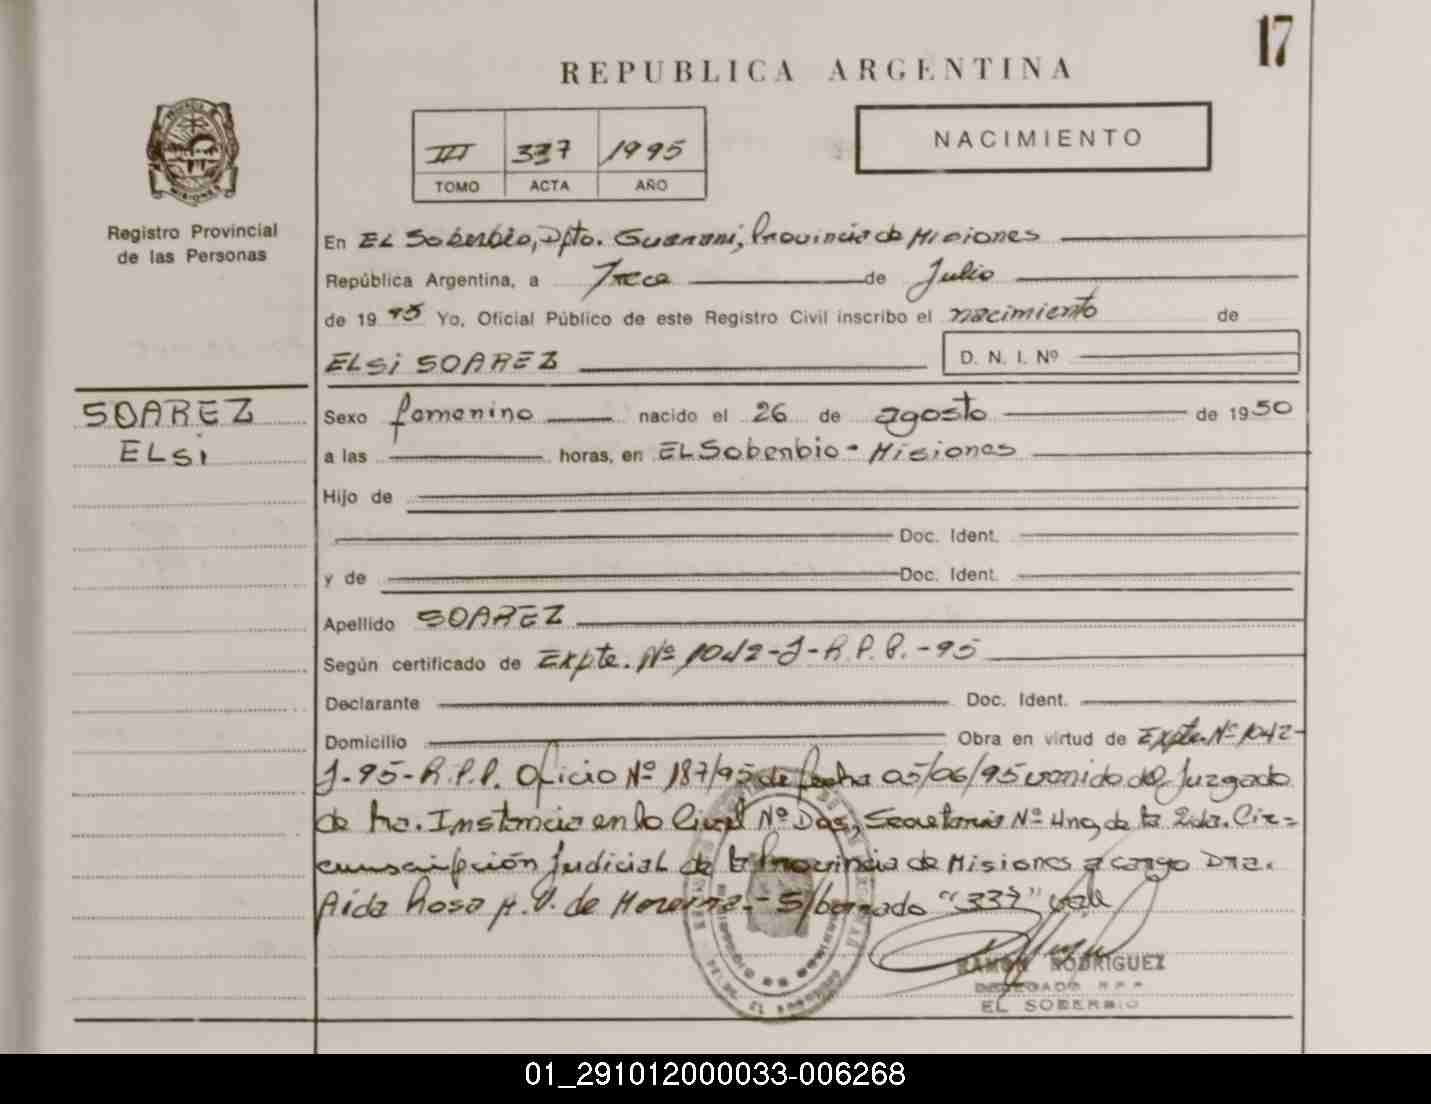 17
REPUBLICA ARGENTINA
III 337 1995
TOMO ACTA AÑO
NACIMIENTO
Registro Provincial
de las Personas
En EL Soberbio, Dpto. Guarani, Provincia de Misiones
República Argentina, a Trece de Julio
de 1995 Yo, Oficial Público de este Registro Civil inscribo el nacimiento de
ELSi SOAREZ D. N. I. Nº
SOAREZ
ELSi
Sexo femenino nacido el 26 de agosto de 1950
a las horas, en EL Soberbio - Misiones
Hijo de
Doc. Ident.
y de Doc. Ident.
Apellido SOAREZ
Según certificado de Expte. Nº 1042-J-R.P.P.-95
Declarante Doc. Ident.
Domicilio Obra en virtud de Expte. Nº 1042-
J-95-R.P.P. Oficio Nº 187/95 de fecha 05/06/95 venido del Juzgado
de 1ra. Instancia en lo Civil Nº Dos, Secretaria Nº Uno, de la 2da. Cir=
cunscripción Judicial de la Provincia de Misiones a cargo Dra.
Aida Rosa M. V. de Moreira.- S/borrado "337" vale
RAMON RODRIGUEZ
DELEGADO R.P.P.
EL SOBERBIO
01_291012000033-006268